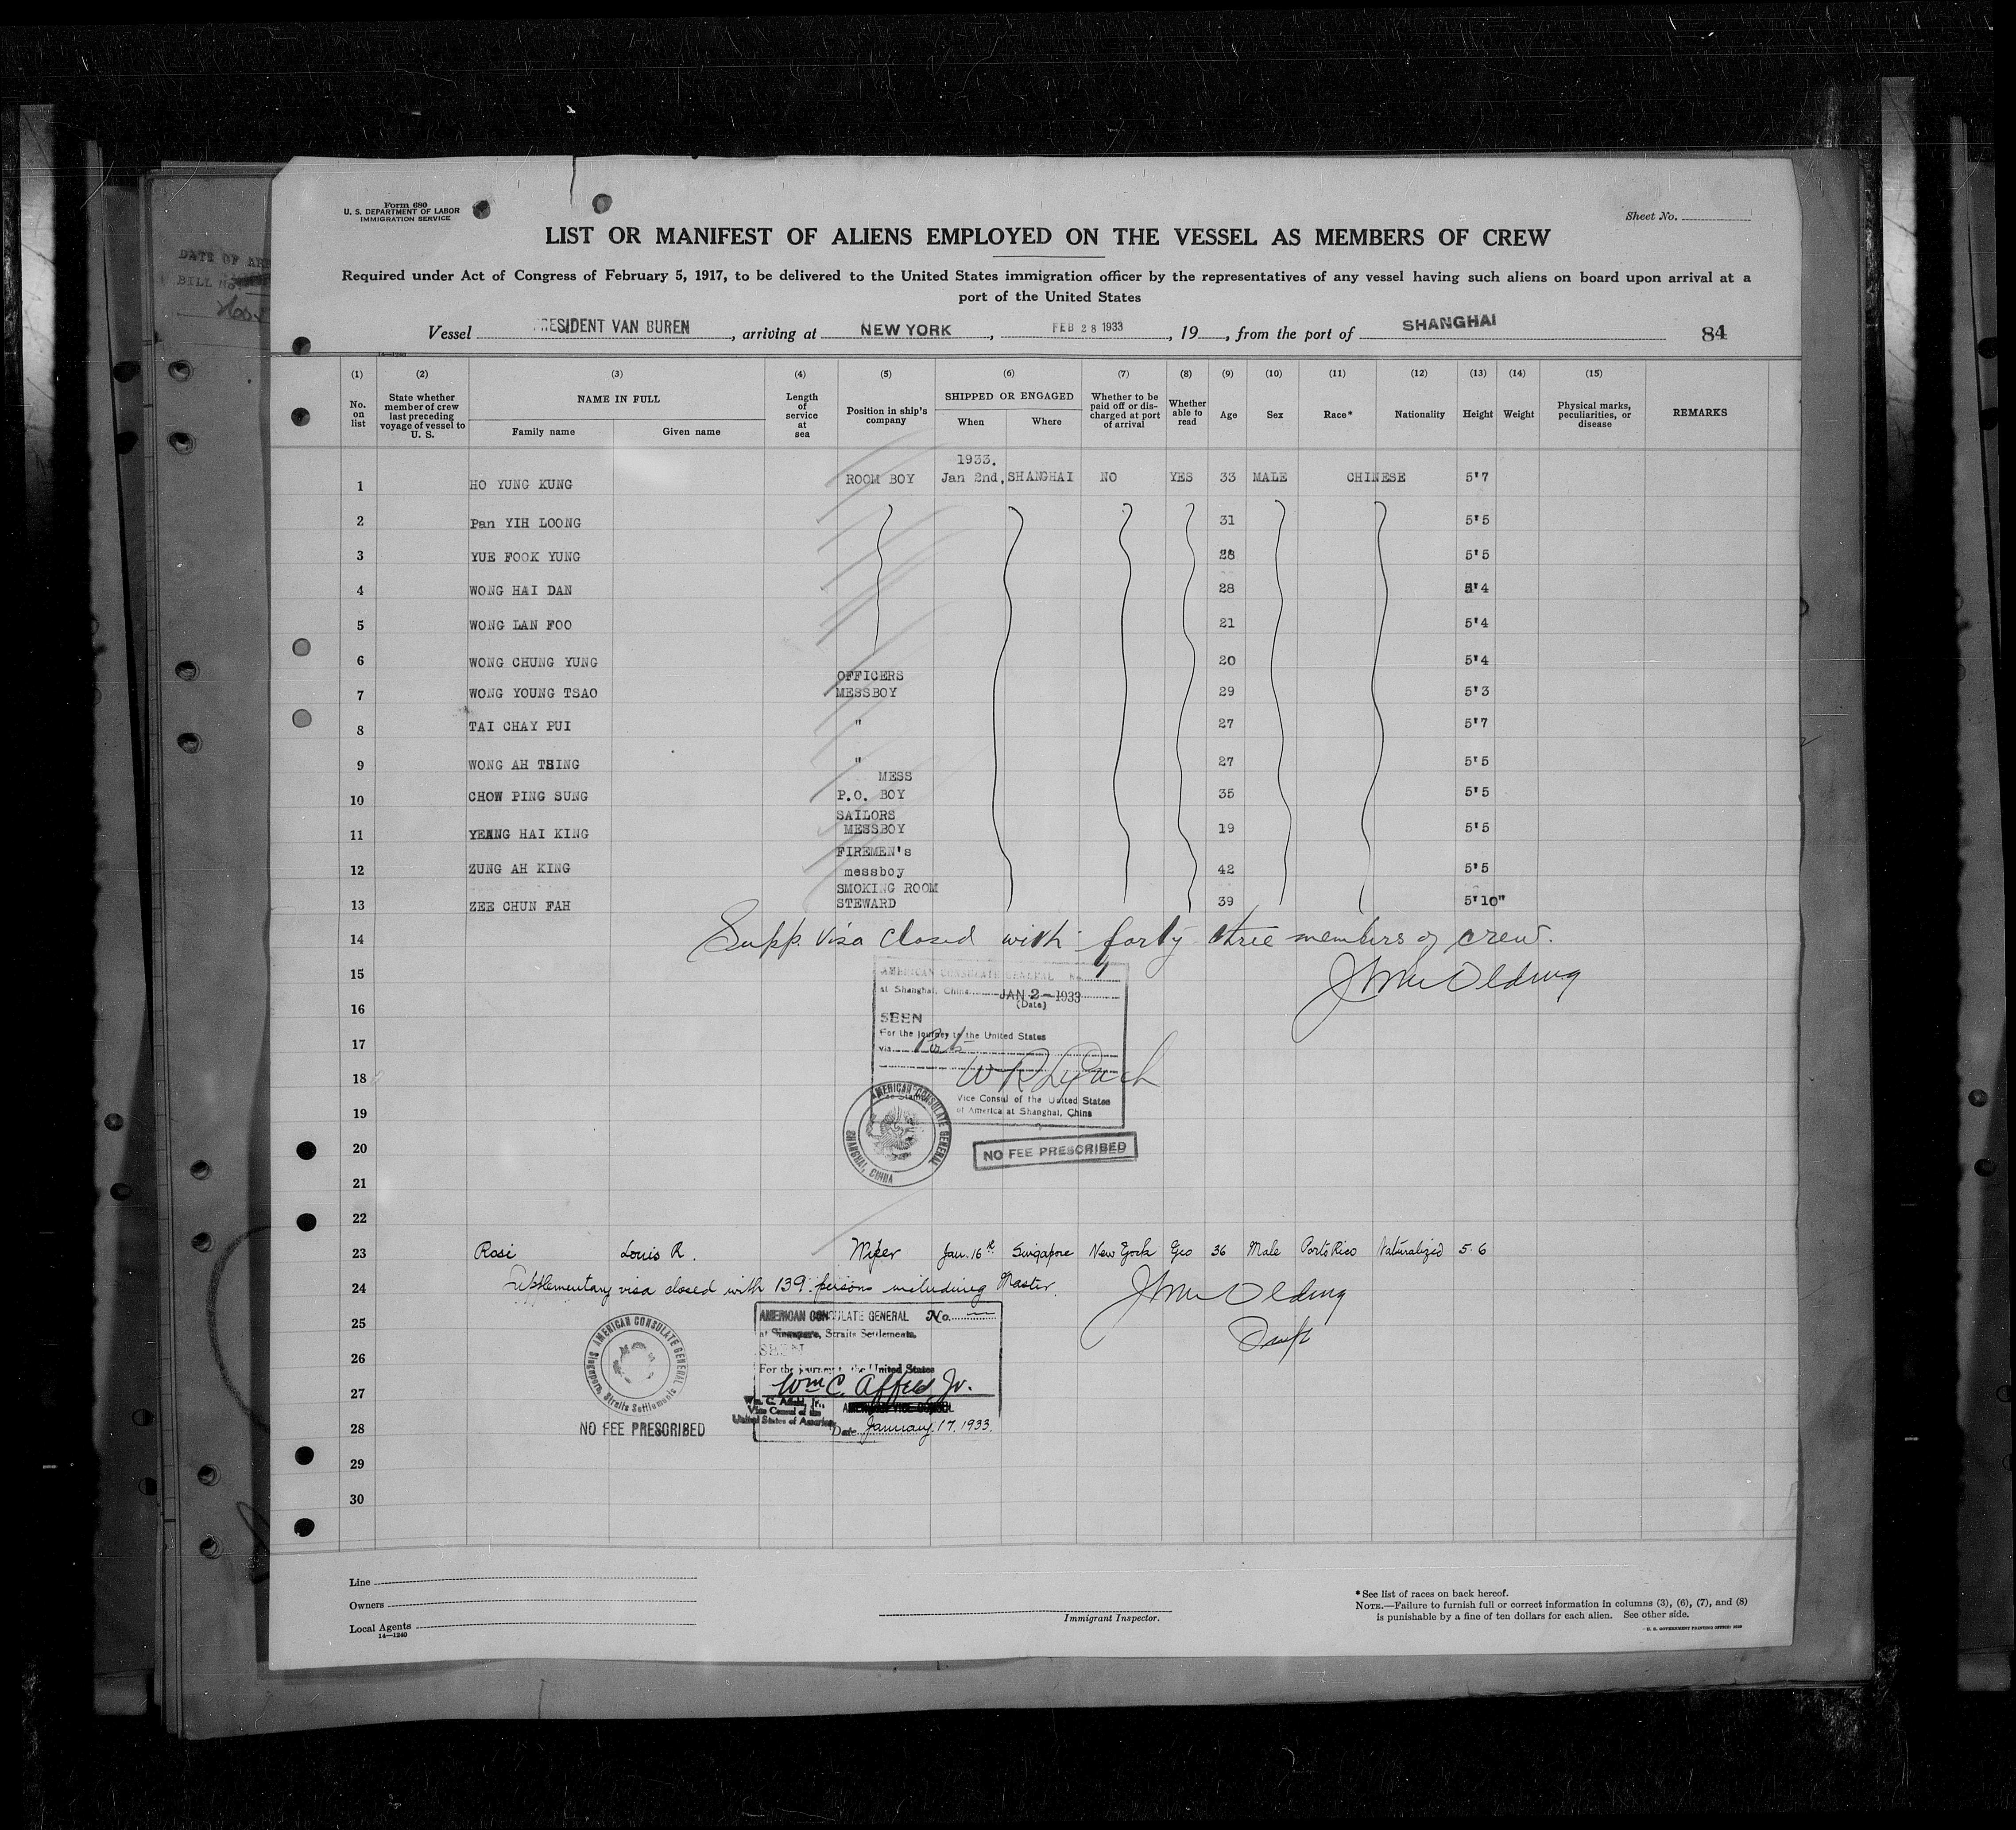 Form 680
U. S. DEPARTMENT OF LABOR
IMMIGRATION SERVICE
Sheet No.
LIST OR MANIFEST OF ALIENS EMPLOYED ON THE VESSEL AS MEMBERS OF CREW
Required under Act of Congress of February 5, 1917, to be delivered to the United States immigration officer by the representatives of any vessel having such aliens on board upon arrival at a
port of the United States
Vessel PRESIDENT VAN BUREN, arriving at NEW YORK, FEB 28 1933, 19 , from the port of SHANGHAI 84
14—1240
(1) (2) (3) (4) (5) (6) (7) (8) (9) (10) (11) (12) (13) (14) (15)
No. on list
State whether member of crew last preceding voyage of vessel to U. S.
NAME IN FULL
Family name Given name
Length of service at sea
Position in ship's company
SHIPPED OR ENGAGED
When Where
Whether to be paid off or discharged at port of arrival
Whether able to read
Age
Sex
Race*
Nationality
Height
Weight
Physical marks, peculiarities, or disease
REMARKS
1933.
1 HO YUNG KUNG ROOM BOY Jan 2nd, SHANGHAI NO YES 33 MALE CHINESE 5'7
2 Pan YIH LOONG 31 5'5
3 YUE FOOK YUNG 28 5'5
4 WONG HAI DAN 28 5'4
5 WONG LAN FOO 21 5'4
6 WONG CHUNG YUNG 20 5'4
OFFICERS
7 WONG YOUNG TSAO MESSBOY 29 5'3
8 TAI CHAY PUI " 27 5'7
9 WONG AH TSING " 27 5'5
MESS
10 CHOW PING SUNG P.O. BOY 35 5'5
SAILORS
11 YEANG HAI KING MESSBOY 19 5'5
FIREMEN's
12 ZUNG AH KING messboy 42 5'5
SMOKING ROOM
13 ZEE CHUN FAH STEWARD 39 5'10"
14 Supp. visa closed with forty three members of crew.
15
AMERICAN CONSULATE GENERAL No.
at Shanghai, China JAN 2 - 1933
(Date)
16
SEEN
For the journey to the United States
17
via
18
Vice Consul of the United States
of America at Shanghai, China
19
AMERICAN CONSULATE GENERAL
SHANGHAI, CHINA
20
NO FEE PRESCRIBED
21
22
23 Rosi Louis R. Wiper Jan. 16th Singapore New York Yes 36 Male Porto Rico Naturalized 5.6
24 Supplementary visa closed with 139 persons including Master.
25
AMERICAN CONSULATE GENERAL No.
at Singapore, Straits Settlements,
SEEN
26
For the journey to the United States
AMERICAN CONSULATE GENERAL
Singapore, Straits Settlements
27
Wm. C. Affeld, Jr.
Wm. C. Affeld, Jr.,
Vice Consul of the
United States of America
AMERICAN VICE CONSUL
28
Date January 17, 1933.
NO FEE PRESCRIBED
29
30
Line
Owners
Local Agents
14—1240
Immigrant Inspector.
*See list of races on back hereof.
NOTE.—Failure to furnish full or correct information in columns (3), (6), (7), and (8)
is punishable by a fine of ten dollars for each alien. See other side.
DATE OF
BILL No